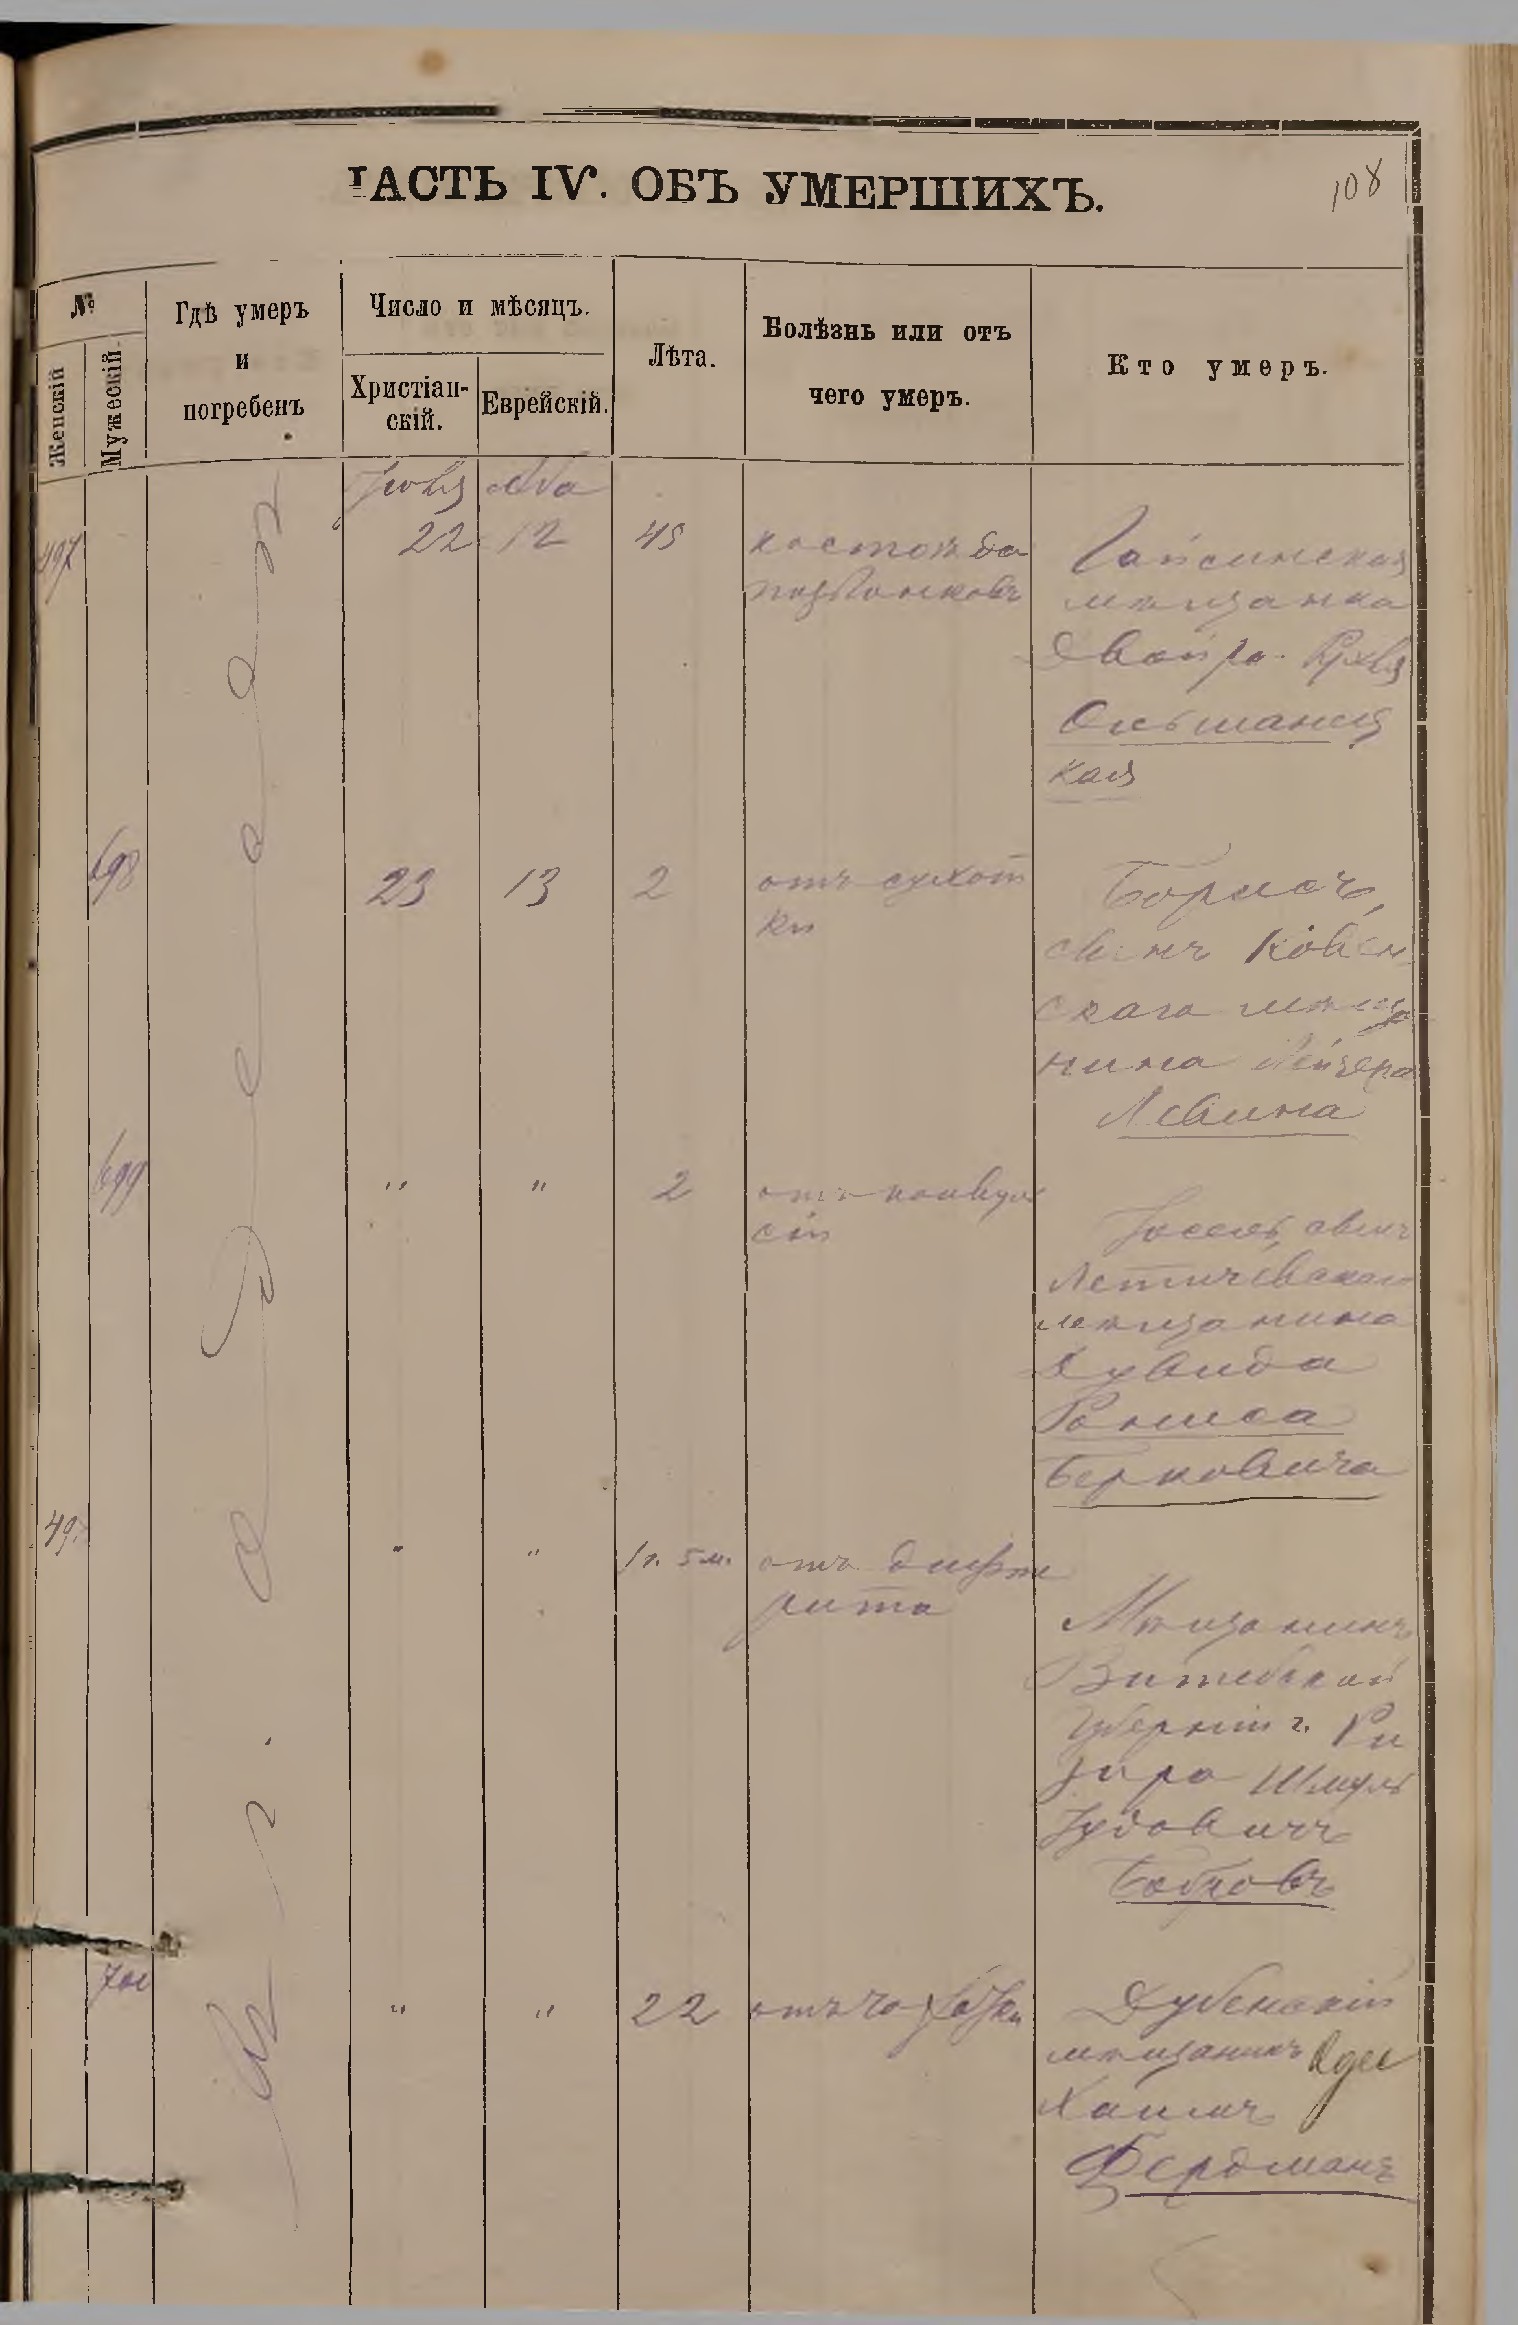 ЧАСТЬ IV. ОБЪ УМЕРШИХЪ.
108
№
Женскій
Мужескій.
Гдѣ умеръ
и
погребенъ
Число и мѣсяцъ.
Христіан-
скій.
Еврейскій.
Лѣта.
Болѣзнь или отъ
чего умеръ.
Кто умеръ.
Въ г. Одессѣ
Іюля Аба
497
22 12 45
костоѣда
позвонковъ
Гайсинская
мѣщанка
Двойра Рухля
Ольшанс
кая
698
23 13 2
отъ сухот
ки
Борисъ,
сынъ Ковен
скаго мѣща
нина Лейзера
Левина
699
" " 2
отъ конвул
сій
Іосель, сынъ
Летичевскаго
мѣщанина
Дувида
Берковича
49
" " 1 г. 5 м.
отъ дифте
рита
Мѣщанинъ
Витебской
губерніи г.
Шмуль
Іудовичъ
Бобровъ
700
" " 22
отъ чахотки
Дубенскій
мѣщанинъ
Хаимъ
Фердманъ